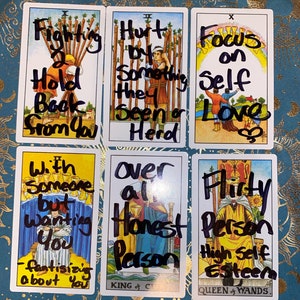 Fighting
2
Hold
Back
From You
Hurt
by
Something
they
Seen or
Herd
X
Focus
on
Self
Love
With
Someone
but
Wanting
You
-fantisizing
about You
over
all
Honest
Person
KING
Flirty
Person
High Self
Esteem
QUEEN of WANDS.